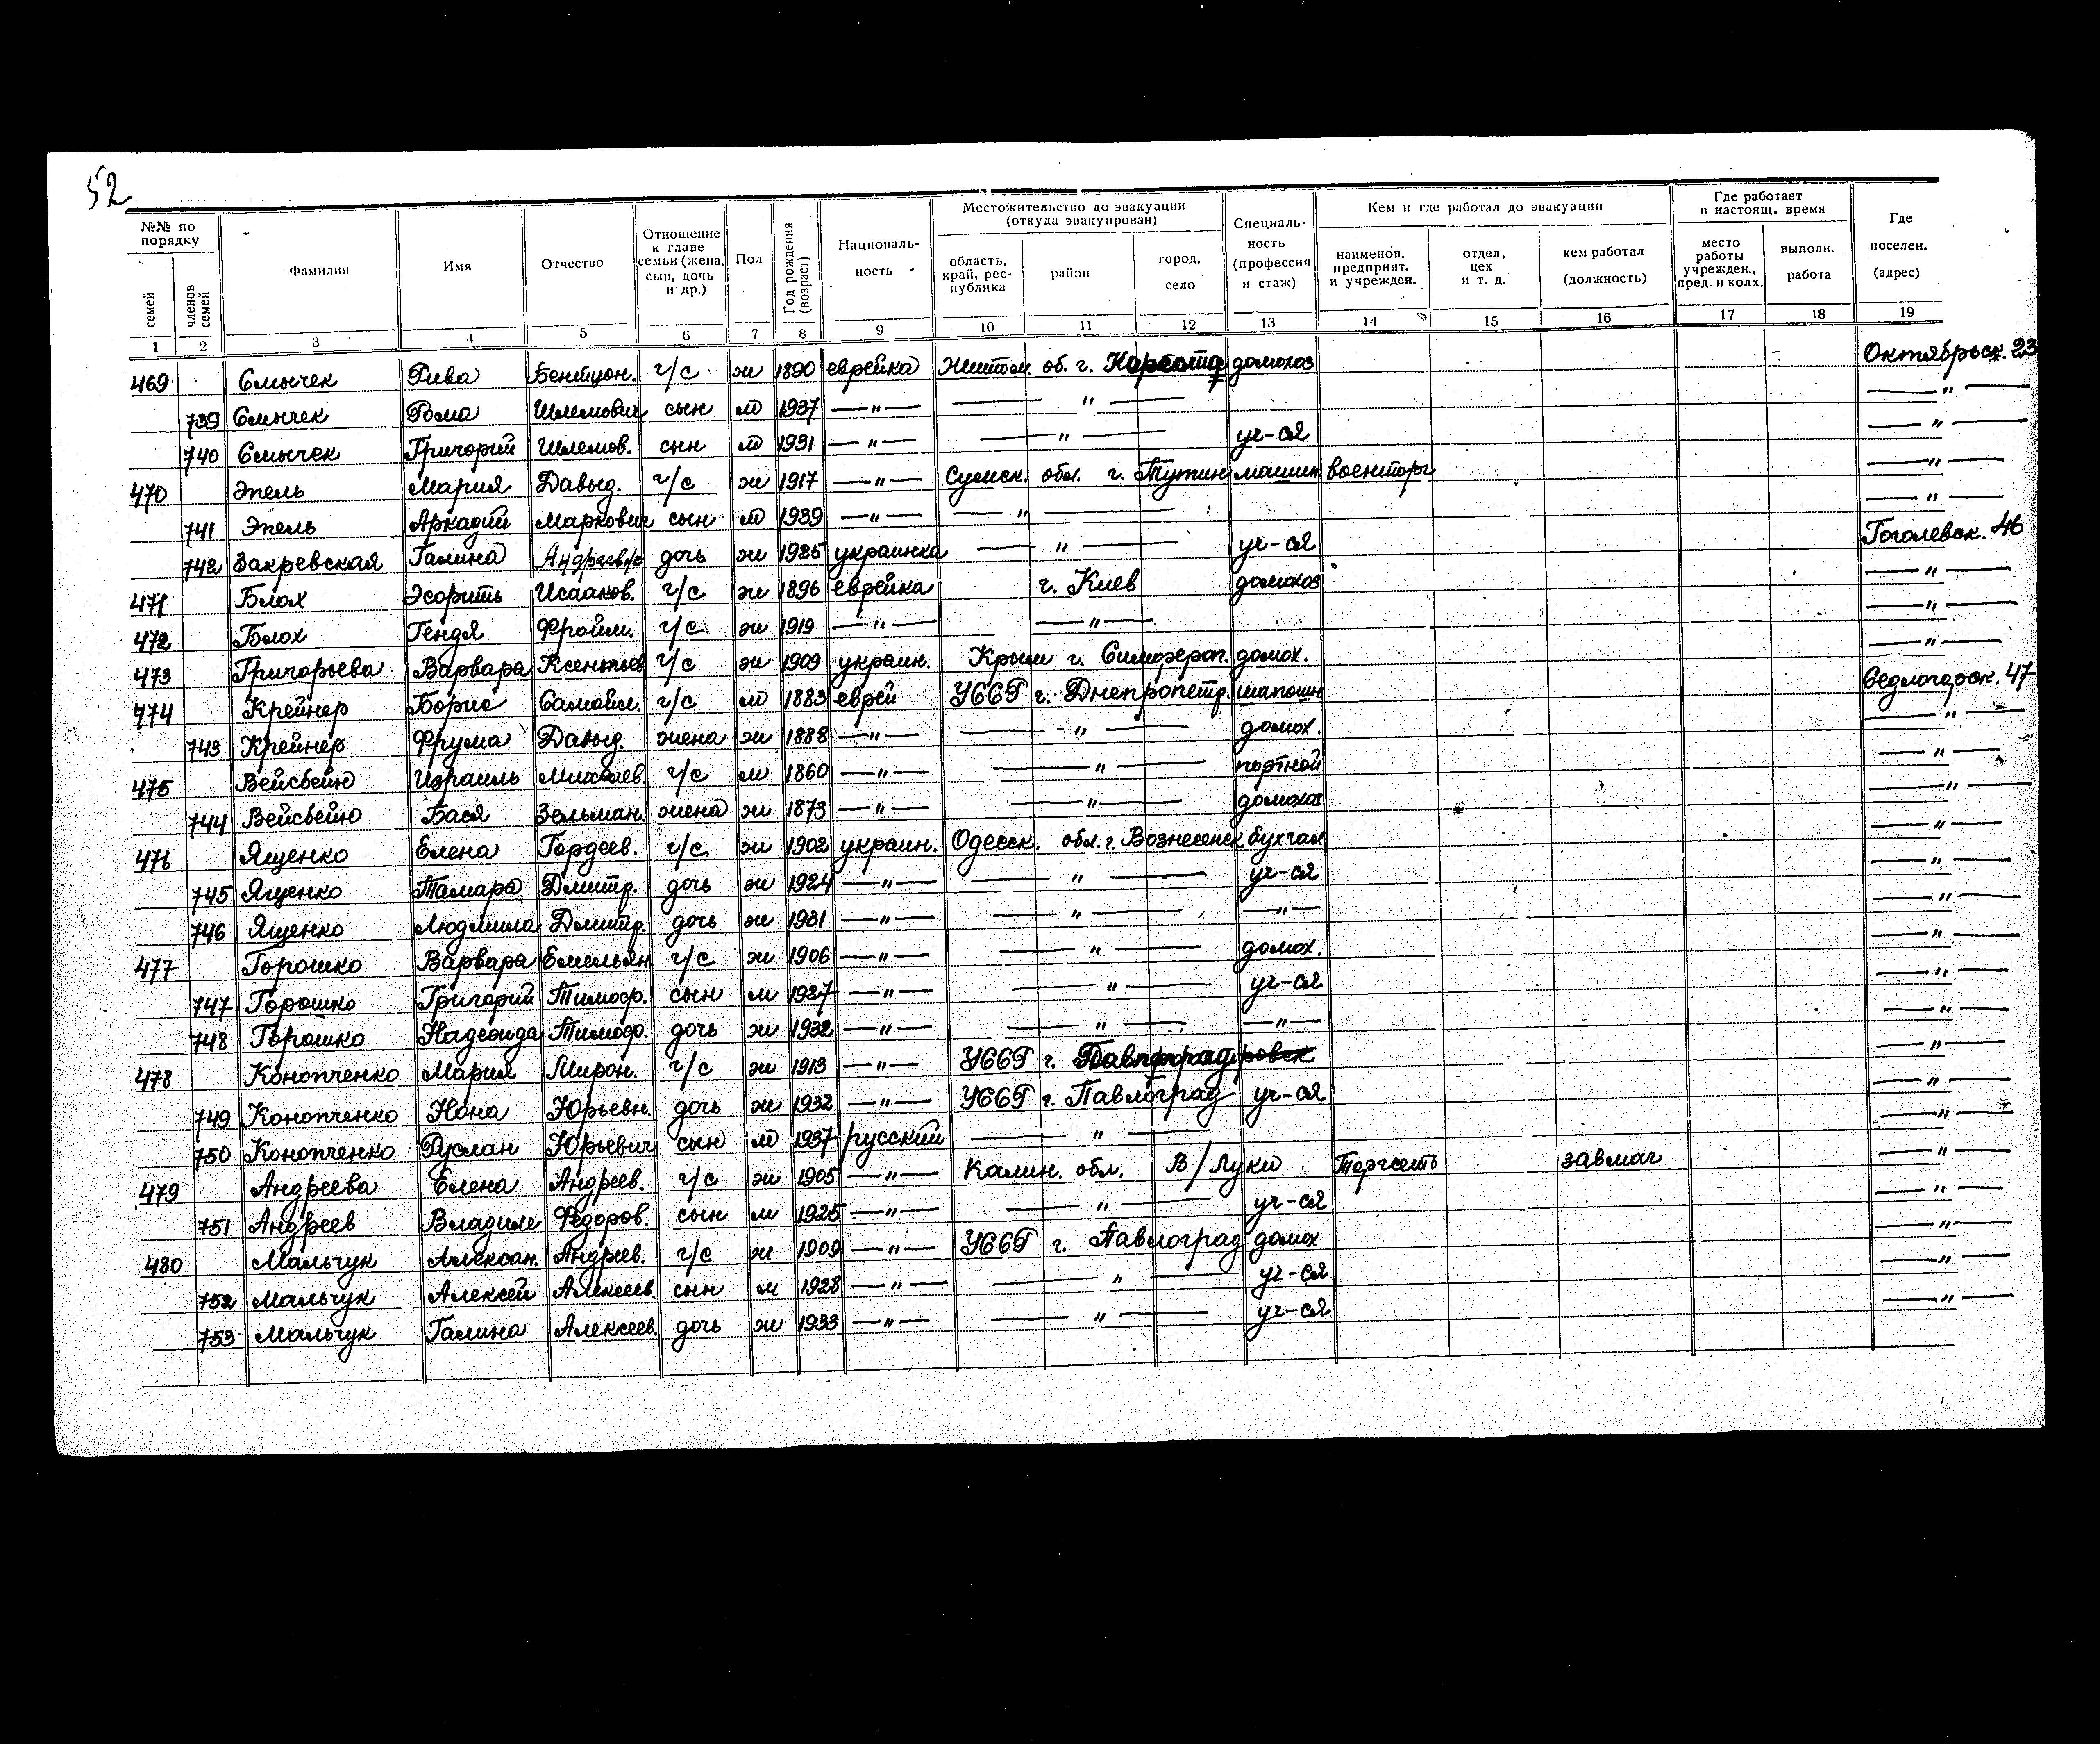 52
№№ по порядку | Фамилия | Имя | Отчество | Отношение к главе семьи (жена, сын, дочь и др.) | Пол | Год рождения (возраст) | Националь-ность | Местожительство до эвакуации (откуда эвакуирован) | Специаль-ность (профессия и стаж) | Кем и где работал до эвакуации | Где работает в настоящ. время | Где поселен. (адрес)
семей | членов семей | область, край, рес-публика | район | город, село | наименов. предприят. и учрежден. | отдел, цех и т. д. | кем работал (должность) | место работы учрежден., пред. и колх. | выполн. работа
1 | 2 | 3 | 4 | 5 | 6 | 7 | 8 | 9 | 10 | 11 | 12 | 13 | 14 | 15 | 16 | 17 | 18 | 19
469 Смычек Рива Бентцион. г/с ж 1890 еврейка Житом. об. г. домохоз Октябрьск. 23
739 Смычек Рома Шлемович сын м 1937 —"— —"— —"—
740 Смычек Григорий Шлемов. сын м 1931 —"— —"— уч-ся —"—
470 Эпель Мария Давыд. г/с ж 1917 —"— Сумск. обл. г. машин. военторг —"—
741 Эпель Аркадий Маркович сын м 1939 —"— —"— —"—
742 Закревская Галина Андреевна дочь ж 1925 украинка —"— уч-ся Гоголевск. 46
471 Блох Исааков. г/с ж 1896 еврейка г. Киев домохоз —"—
472 Блох Гендя Фройм. г/с ж 1919 —"— —"— —"—
473 Григорьева Варвара Ксентьев г/с ж 1909 украин. Крым г. Симфероп. домох. —"—
474 Крейнер Борис Самойл. г/с м 1883 еврей УССР г. Днепропетр. шапошн Седлогорск. 47
743 Крейнер Фрума Давыд. жена ж 1888 —"— —"— домох. —"—
475 Вейсбейн Израиль Михайлев. г/с м 1860 —"— —"— портной —"—
744 Вейсбейн Бася Зельман. жена ж 1873 —"— —"— домохоз —"—
476 Ященко Елена Гордеев. г/с ж 1902 украин. Одесск. обл. г. Вознесенск бухгал —"—
745 Ященко Тамара Дмитр. дочь ж 1924 —"— —"— уч-ся —"—
746 Ященко Людмила Дмитр. дочь ж 1931 —"— —"— —"— —"—
477 Горошко Варвара Емельян г/с ж 1906 —"— —"— домох. —"—
747 Горошко Григорий Тимоф. сын м 1927 —"— —"— уч-ся —"—
748 Горошко Надежда Тимоф. дочь ж 1932 —"— —"— —"— —"—
478 Конопченко Мария Мирон. г/с ж 1913 —"— УССР г. Павлоград —"—
749 Конопченко Нона Юрьевн. дочь ж 1932 —"— УССР г. Павлоград уч-ся —"—
750 Конопченко Руслан Юрьевич сын м 1937 русский —"— —"—
479 Андреева Елена Андреев. г/с ж 1905 —"— Калин. обл. В/Луки Торгсеть завмаг —"—
751 Андреев Владиле Федоров. сын м 1925 —"— —"— уч-ся —"—
480 Мальчук Алексан. Андреев. г/с ж 1909 —"— УССР г. Павлоград домох —"—
752 Мальчук Алексей Алексеев. сын м 1928 —"— —"— уч-ся —"—
753 Мальчук Галина Алексеев. дочь ж 1933 —"— —"— уч-ся —"—